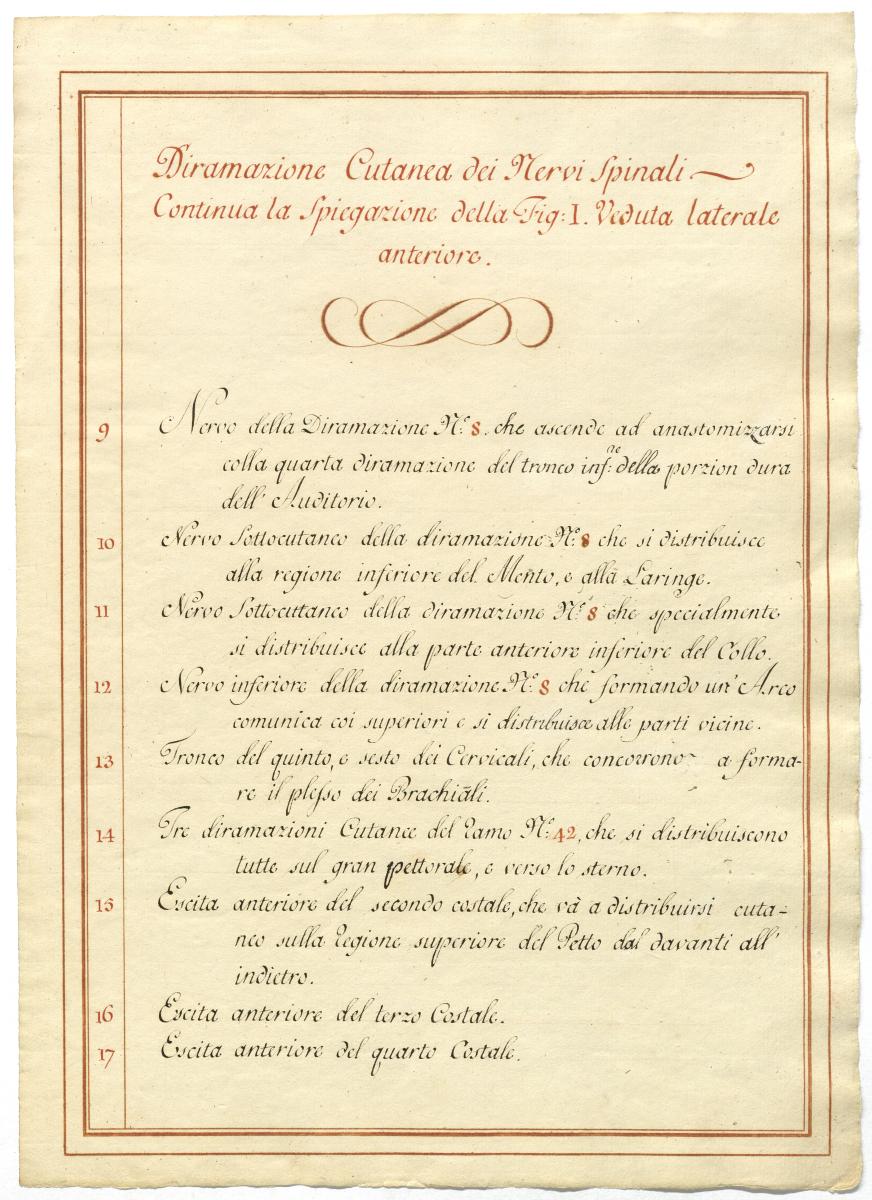 Diramazione Cutanea dei Nervi Spinali
Continua la Spiegazione della Fig: I. Veduta laterale
anteriore.
9 Nervo della Diramazione N.º 8. che ascende ad anastomizzarsi
colla quarta diramazione del tronco inf:re della porzion dura
dell' Auditorio.
10 Nervo Sottocutaneo della diramazione N.º 8 che si distribuisce
alla regione inferiore del Mento, e alla Laringe.
11 Nervo Sottocuttaneo della diramazione N.º 8 che specialmente
si distribuisce alla parte anteriore inferiore del Collo.
12 Nervo inferiore della diramazione N.º 8 che formando un' Arco
comunica coi superiori e si distribuisce alle parti vicine.
13 Tronco del quinto, e sesto dei Cervicali, che concorrono a forma-
re il plesso dei Brachiali.
14 Tre diramazioni Cutanee del Ramo N.º 42, che si distribuiscono
tutte sul gran pettorale, e verso lo sterno.
15 Escita anteriore del secondo costale, che và a distribuirsi cuta-
neo sulla Regione superiore del Petto dal davanti all'
indietro.
16 Escita anteriore del terzo Costale.
17 Escita anteriore del quarto Costale.